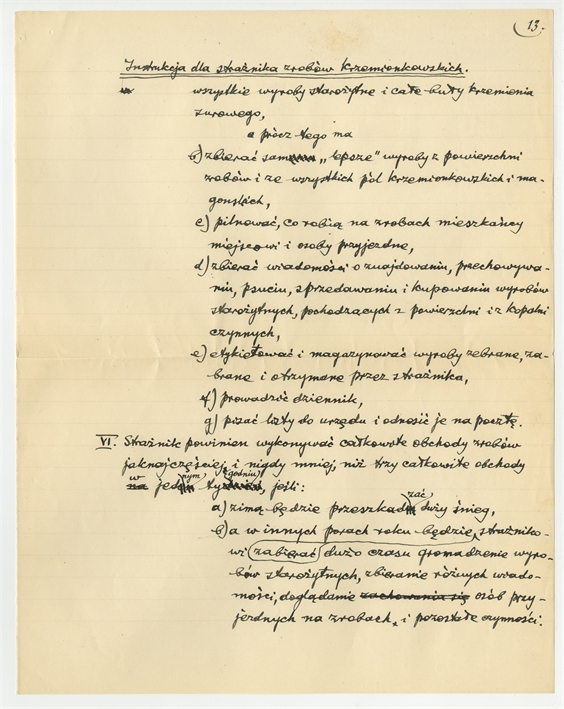 13.
Instrukcja dla strażnika zrobów krzemionkowskich.
wszystkie wyroby starożytne i całe buły krzemienia
surowego,
a prócz tego ma
b) zbierać sam "lepsze" wyroby z powierzchni
zrobów i ze wszystkich pól krzemionkowskich i ma-
gońskich,
c) pilnować, co robią na zrobach mieszkańcy
miejscowi i osoby przyjezdne,
d) zbierać wiadomości o znajdowaniu, przechowywa-
niu, psuciu, sprzedawaniu i kupowaniu wyrobów
starożytnych, pochodzących z powierzchni i z kopalni
czynnych,
e) etykietować i magazynować wyroby zebrane, za-
brane i otrzymane przez strażnika,
f) prowadzić dziennik,
g) pisać listy do urzędu i odnosić je na pocztę.
VI. Strażnik powinien wykonywać całkowite obchody zrobów
jaknajczęściej, i nigdy mniej, niż trzy całkowite obchody
w jednym tygodniu, jeśli:
a) zimą będzie przeszkadzać duży śnieg,
b) a w innych porach roku będzie, strażniko-
wi zabierać dużo czasu gromadzenie wyro-
bów starożytnych, zbieranie różnych wiado-
mości, doglądanie zachowania się osób przy-
jezdnych na zrobach, i pozostałe czynności.